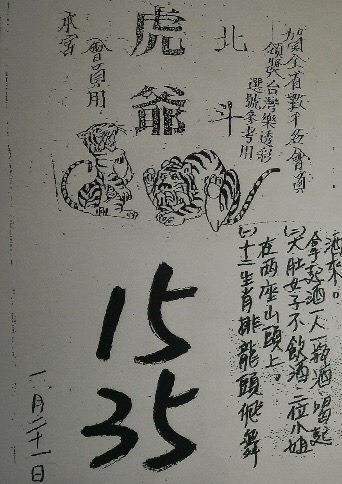 全省數千名會員
領獎台灣樂透彩
選號參考用
北斗
虎爺
會員用
水宮
(一)十二生肖排龍頭飛舞
在兩座山頭上。
(二)大肚女子不飲酒三位小姐
拿起酒一人一瓶酒喝起
酒來。
15
35
一月二十一日